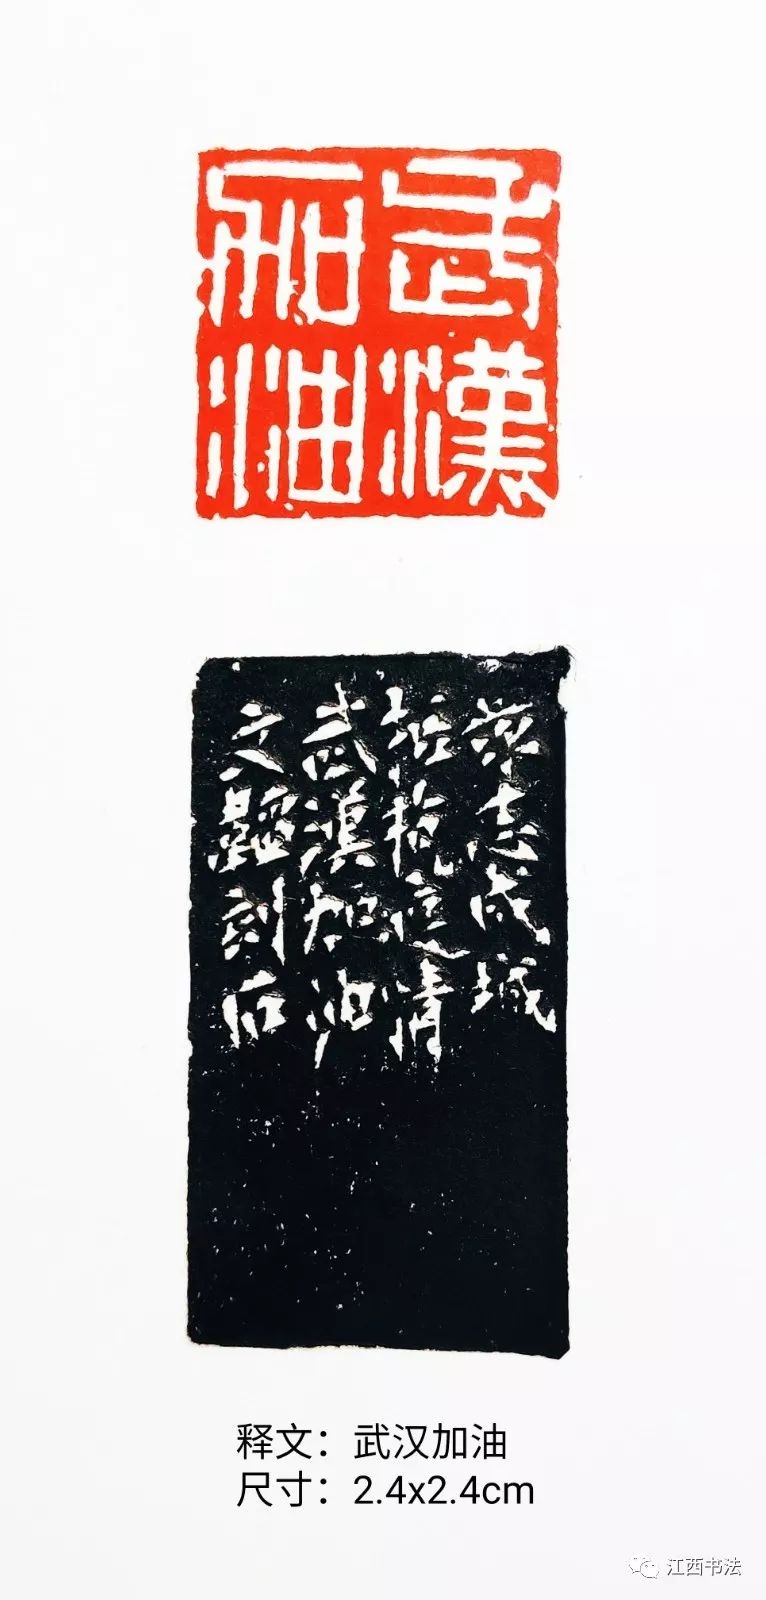 武漢
加油
众志成城
抗疫情
武漢加油
文韜刻石
释文：武汉加油
尺寸：2.4x2.4cm
江西书法